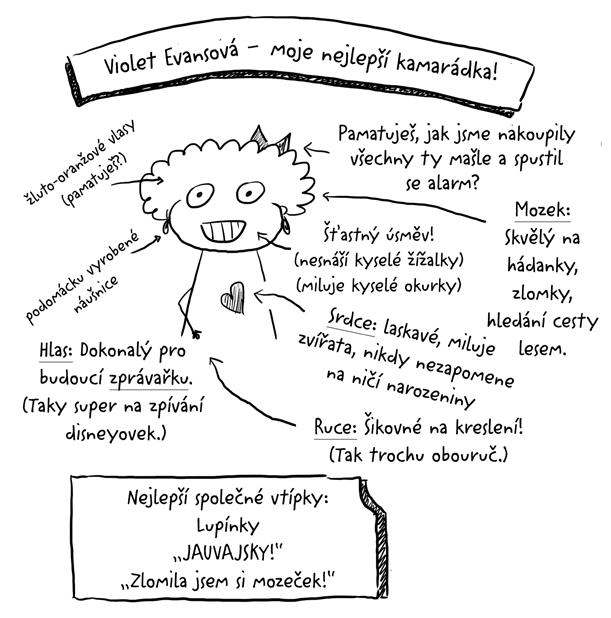 Violet Evansová – moje nejlepší kamarádka!
žluto-oranžové vlasy
(pamatuješ?)
Pamatuješ, jak jsme nakoupily
všechny ty mašle a spustil
se alarm?
Mozek:
Skvělý na
hádanky,
zlomky,
hledání cesty
lesem.
Šťastný úsměv!
(nesnáší kyselé žížalky)
(miluje kyselé okurky)
podomácku vyrobené
náušnice
Srdce: laskavé, miluje
zvířata, nikdy nezapomene
na ničí narozeniny
Hlas: Dokonalý pro
budoucí zprávařku.
(Taky super na zpívání
disneyovek.)
Ruce: Šikovné na kreslení!
(Tak trochu obouruč.)
Nejlepší společné vtípky:
Lupínky
„JAUVAJSKY!“
„Zlomila jsem si mozeček!“